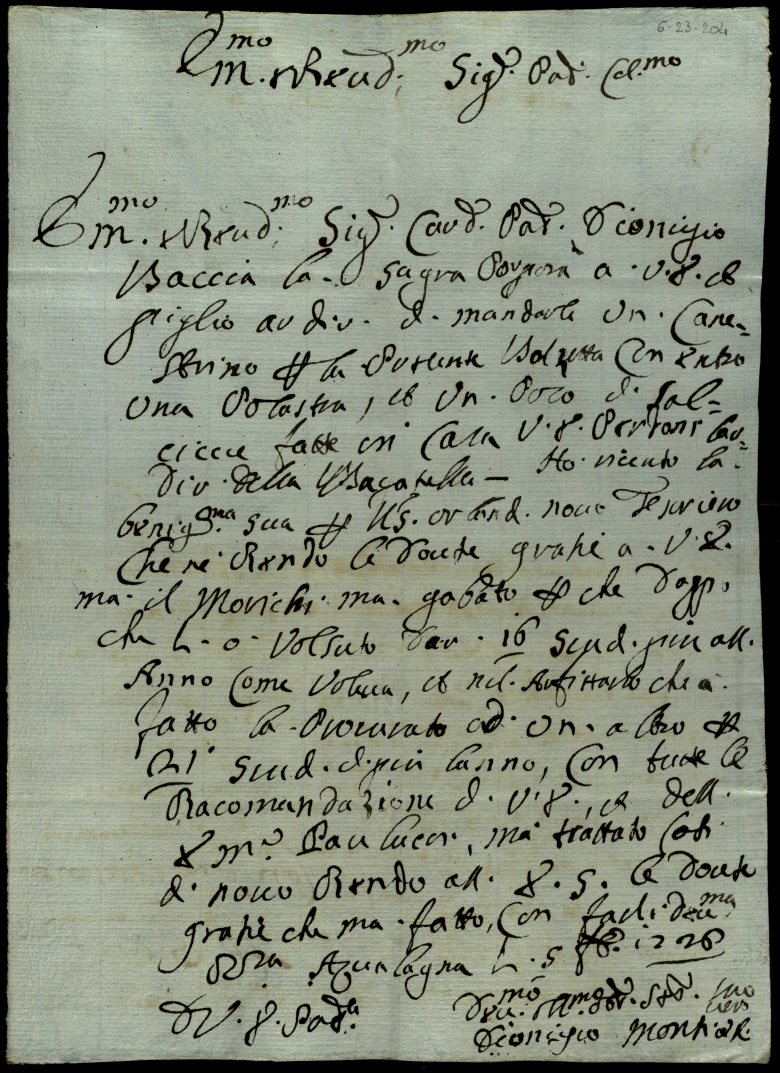 6-23-204
Em.mo e Reud.mo Sig.r Pad. Col.mo
Em.mo e Reud.mo Sig.r Card. Pad. Dionigio
Baccia la Sagra Porpora a V. E. et
piglio ardir. di mandarle un Cane=
strino la Presente Con entro
una Polastra, et un Poco di sal=
ciccie fatte in Casa V. E. Perdoni lar=
dir della Bacatella — Ho riceuto la
benig.ma sua orland. nouo Tesoriero
Che ne Rendo le Doute gratie a V. E.
ma il Morichi ma gabato che Doppo
che o Volsuto Dar 16 Scud. piu all.
Anno Come Voleua, et nel Afittarlo che a
fatto la Procurato ad un altro
21 Scud. di piu lanno, Con tutte le
Racomandazione di V. E., et dell.
E m.o Paulucci, ma trattato Cosi
di nouo Rendo all. E. S. le Doute
gratie che ma fatto, Con farli
Aqualagna 5 1726
D V. E. Pad.
Dionigio Monti